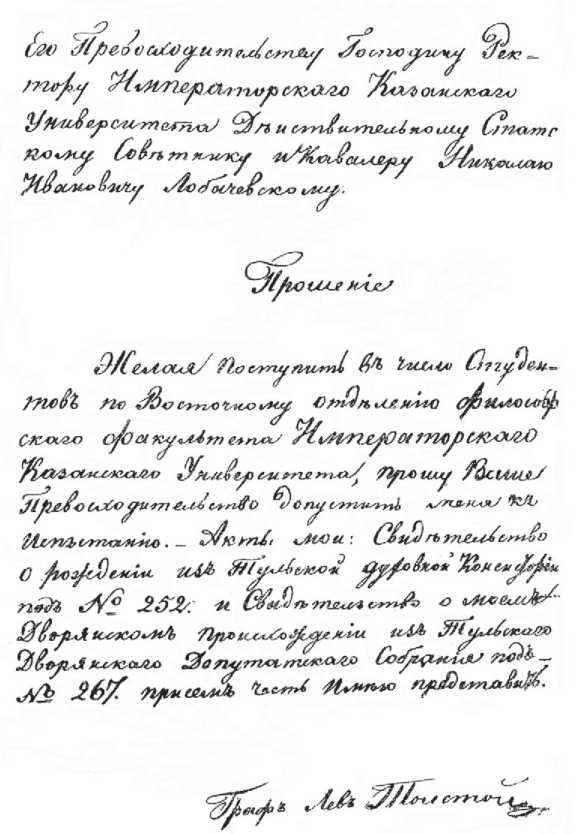 Его Превосходительству Господину Рек=
тору Императорскаго Казанскаго
Университета Дѣиствительному Статс
кому Совѣтнику и Кавалеру Николаю
Ивановичу Лобачевскому.
Прошеніе
Желая поступить въ число Студен=
товъ по Восточному отдѣленію философ
скаго факультета Императорскаго
Казанскаго Университета, прошу Ваше
Превосходительство допустить меня къ
испытанію. – Акты мои: Свидѣтельство
о рожденіи изъ Тульской духовной Консисторіи
подъ № 252. и Свидѣтельство о моемъ
Дворянскомъ происхожденіи изъ Тульскаго
Дворянскаго Депутатскаго Собранія подъ
№ 267. присемъ честь имѣю представить.
Графъ Левъ Толстой